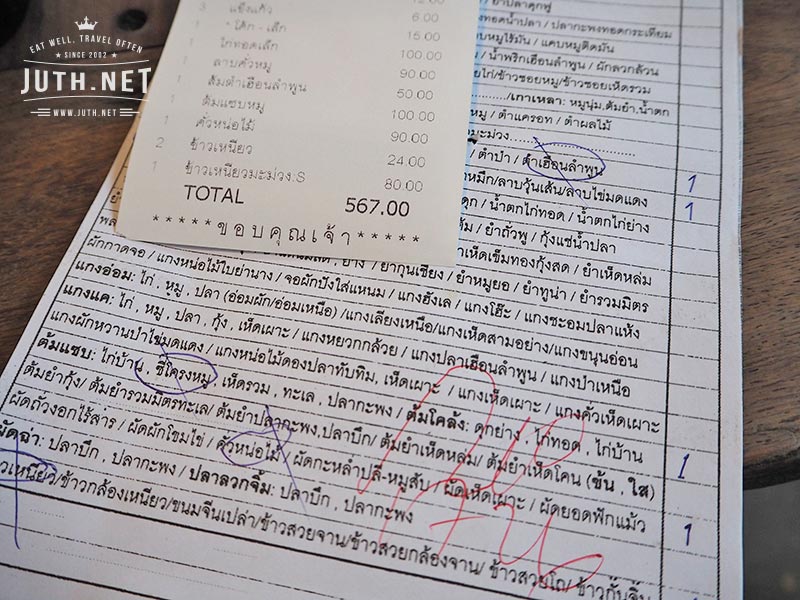 EAT WELL, TRAVEL OFTEN
SINCE 2002
JUTH.NET
WWW.JUTH.NET
3 แข็งแก้ว 6.00
1 * โค้ก - เล็ก 15.00
1 ไก่ทอดเล็ก 100.00
1 ลาบคั่วหมู 90.00
1 ส้มตำเฮือนลำพูน 50.00
1 ต้มแซบหมู 100.00
1 คั่วหน่อไม้ 90.00
2 ข้าวเหนียว 24.00
1 ข้าวเหนียวมะม่วง:S 80.00
TOTAL 567.00
*****ขอบคุณเจ้า*****
ปลากะพงทอดกระเทียม
/ แคบหมูติดมัน
/ น้ำพริกเฮือนลำพูน / ผักลวกล้วน
/ข้าวซอยหมู/ข้าวซอยเห็ดรวม
/เกาเหลา: หมูนุ่ม,ต้มยำ,น้ำตก
/ ตำแครอท / ตำผลไม้
/ ตำป่า / ตำเฮือนลำพูน 1
/ลาบวุ้นเส้น/ลาบไข่มดแดง 1
/ น้ำตกไก่ทอด / น้ำตกไก่ย่าง
/ ยำถั่วพู / กุ้งแช่น้ำปลา
ยำเห็ดเข็มทองกุ้งสด / ยำเห็ดหล่ม
/ ยำกุนเชียง / ยำหมูยอ / ยำทูน่า / ยำรวมมิตร
ผักกาดจอ / แกงหน่อไม้ใบย่านาง / จอผักปังใส่แหนม / แกงฮังเล / แกงโฮ๊ะ / แกงชะอมปลาแห้ง
แกงอ่อม: ไก่ , หมู , ปลา (อ่อมผัก/อ่อมเหนือ) /แกงเลียงเหนือ/แกงเห็ดสามอย่าง/แกงขนุนอ่อน
แกงแค: ไก่ , หมู , ปลา , กุ้ง , เห็ดเผาะ / แกงหยวกกล้วย / แกงปลาเฮือนลำพูน / แกงป่าเหนือ
แกงผักหวานป่าไข่มดแดง / แกงหน่อไม้ดองปลาทับทิม, เห็ดเผาะ / แกงเห็ดเผาะ / แกงคั่วเห็ดเผาะ
ต้มแซบ: ไก่บ้าน , ซี่โครงหมู , เห็ดรวม , ทะเล , ปลากะพง / ต้มโคล้ง: ดุกย่าง , ไก่ทอด , ไก่บ้าน 1
ต้มยำกุ้ง/ ต้มยำรวมมิตรทะเล/ ต้มยำปลากะพง,ปลาบึก/ ต้มยำเห็ดหล่ม/ ต้มยำเห็ดโคน (ข้น , ใส)
ผัดถั่วงอกไร้สาร / ผัดผักโขมไข่ / คั่วหน่อไม้ / ผัดกะหล่ำปลี-หมูสับ / ผัดเห็ดเผาะ / ผัดยอดฟักแม้ว 1
ผัดฉ่า: ปลาบึก , ปลากะพง / ปลาลวกจิ้ม: ปลาบึก , ปลากะพง
ข้าวเหนียว/ข้าวกล้องเหนียว/ขนมจีนเปล่า/ข้าวสวยจาน/ข้าวสวยกล้องจาน/ ข้าวสวยโถ/ ข้าวกั๊นจิ๊น